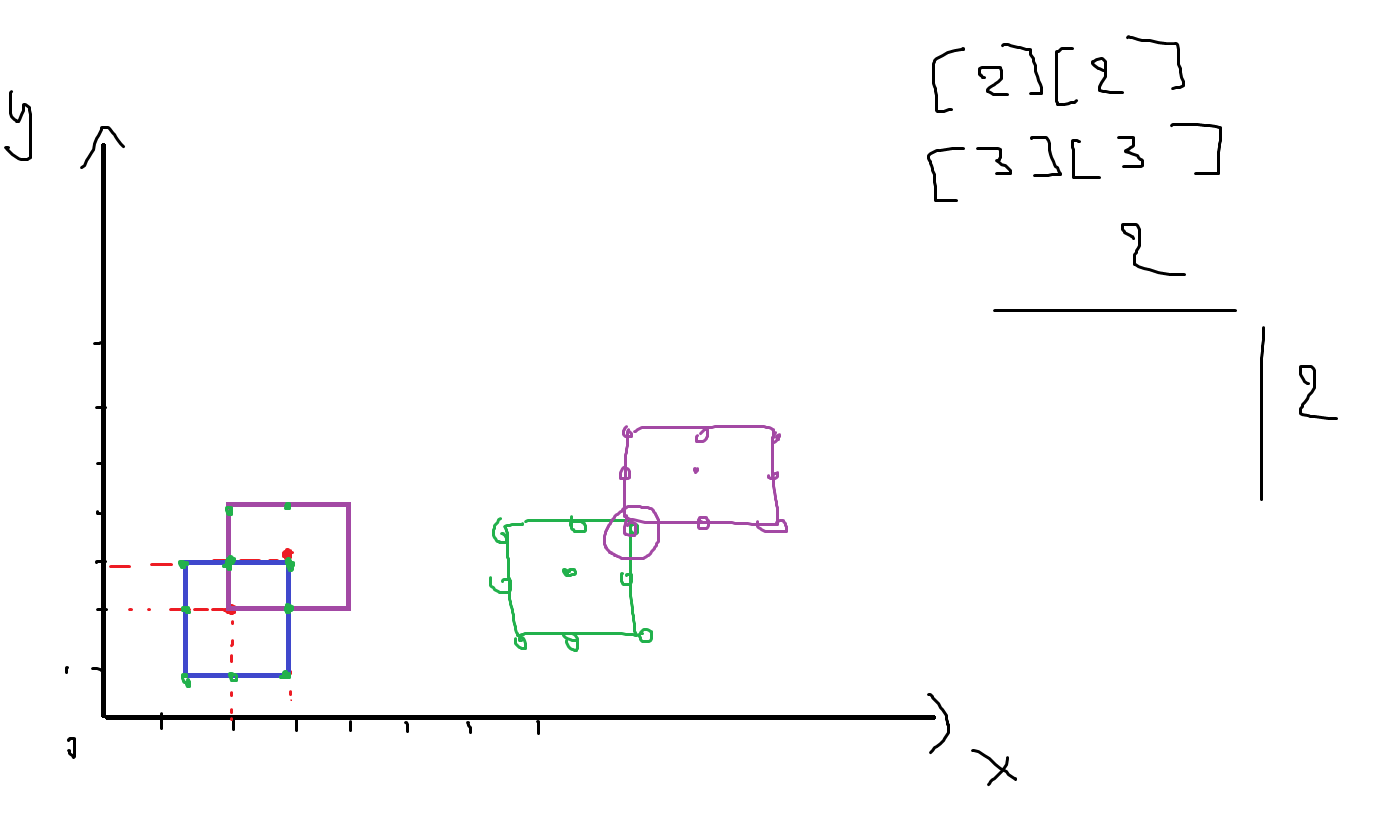 y
[2][2]
[3][3]
2
2
x